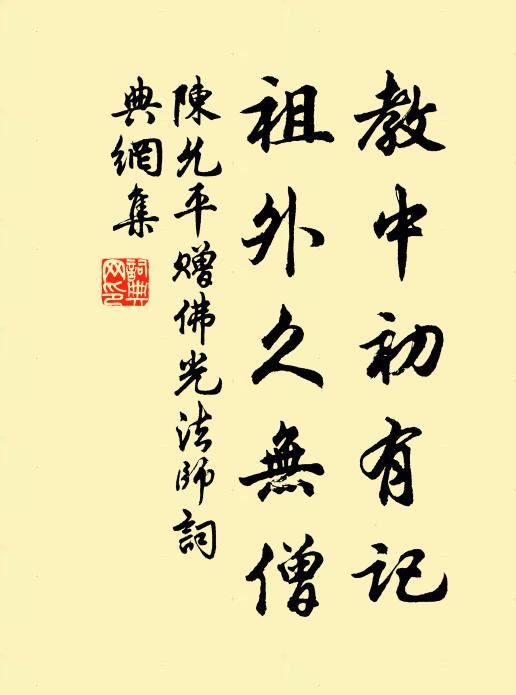 教中初有記
祖外久無僧
陳允平贈佛光法師詞
典網集
詞典網印